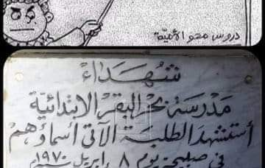 دروس محو الأمية
شهداء
مدرسة بحر البقر الابتدائية
أستشهد الطلبة الآتى أسماؤهم
في صبيحة يوم ٨ ابريل ١٩٧٠